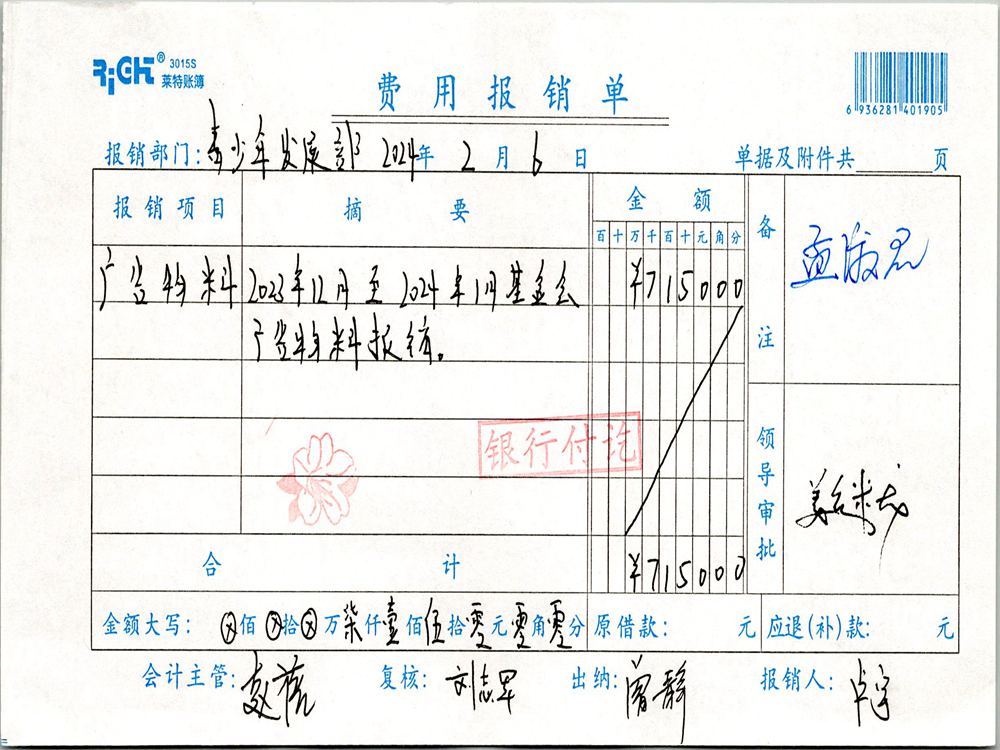 RiCH® 3015S
莱特账簿
费用报销单
6 936281 401905
报销部门：青少年发展部 2024年 2 月 6 日 单据及附件共 页
报销项目 摘要 金额 备注
百十万千百十元角分
广告物料 2023年12月至2024年1月基金会 ¥715000
广告物料报销。
银行付讫
领导审批
合计 ¥715000
金额大写：ⓧ佰ⓧ拾ⓧ万柒仟壹佰伍拾零元零角零分 原借款： 元 应退(补)款: 元
会计主管: 复核: 刘志军 出纳: 曾静 报销人: 卢宇